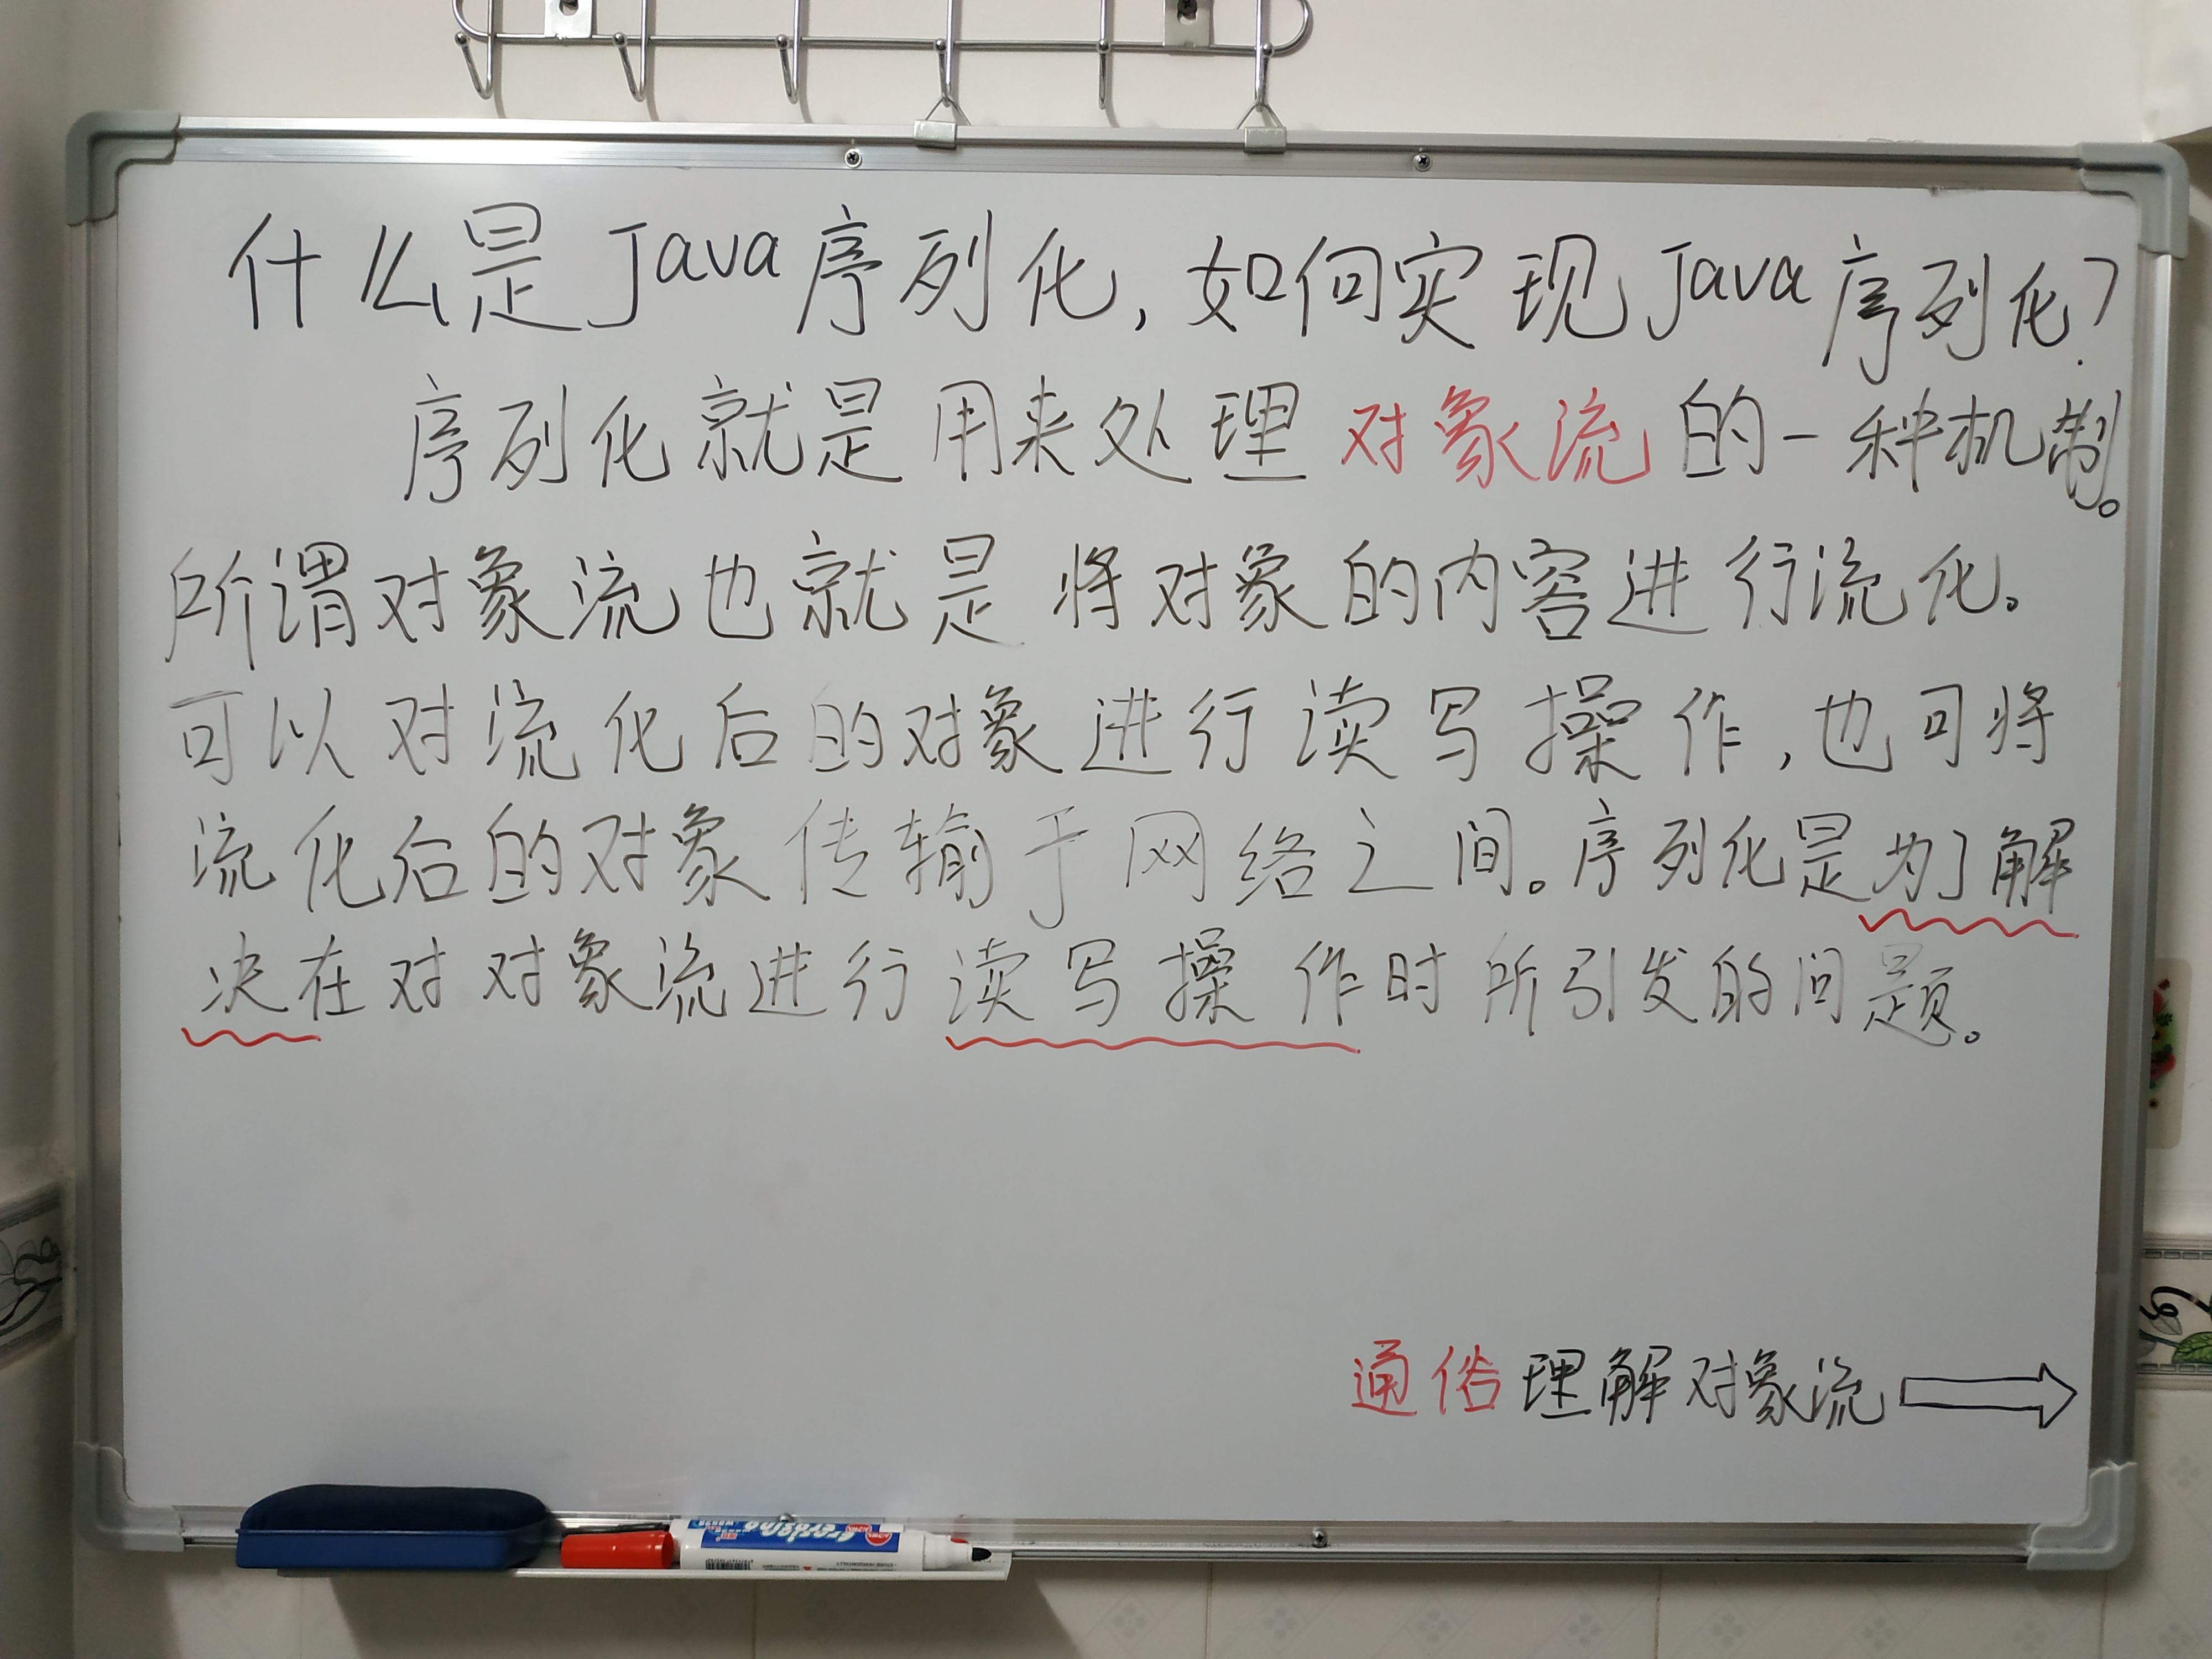 什么是Java序列化,如何实现Java序列化?
序列化就是用来处理对象流的一种机制。
所谓对象流也就是将对象的内容进行流化。
可以对流化后的对象进行读写操作,也可将
流化后的对象传输于网络之间。序列化是为了解
决在对对象流进行读写操作时所引发的问题。
通俗理解对象流